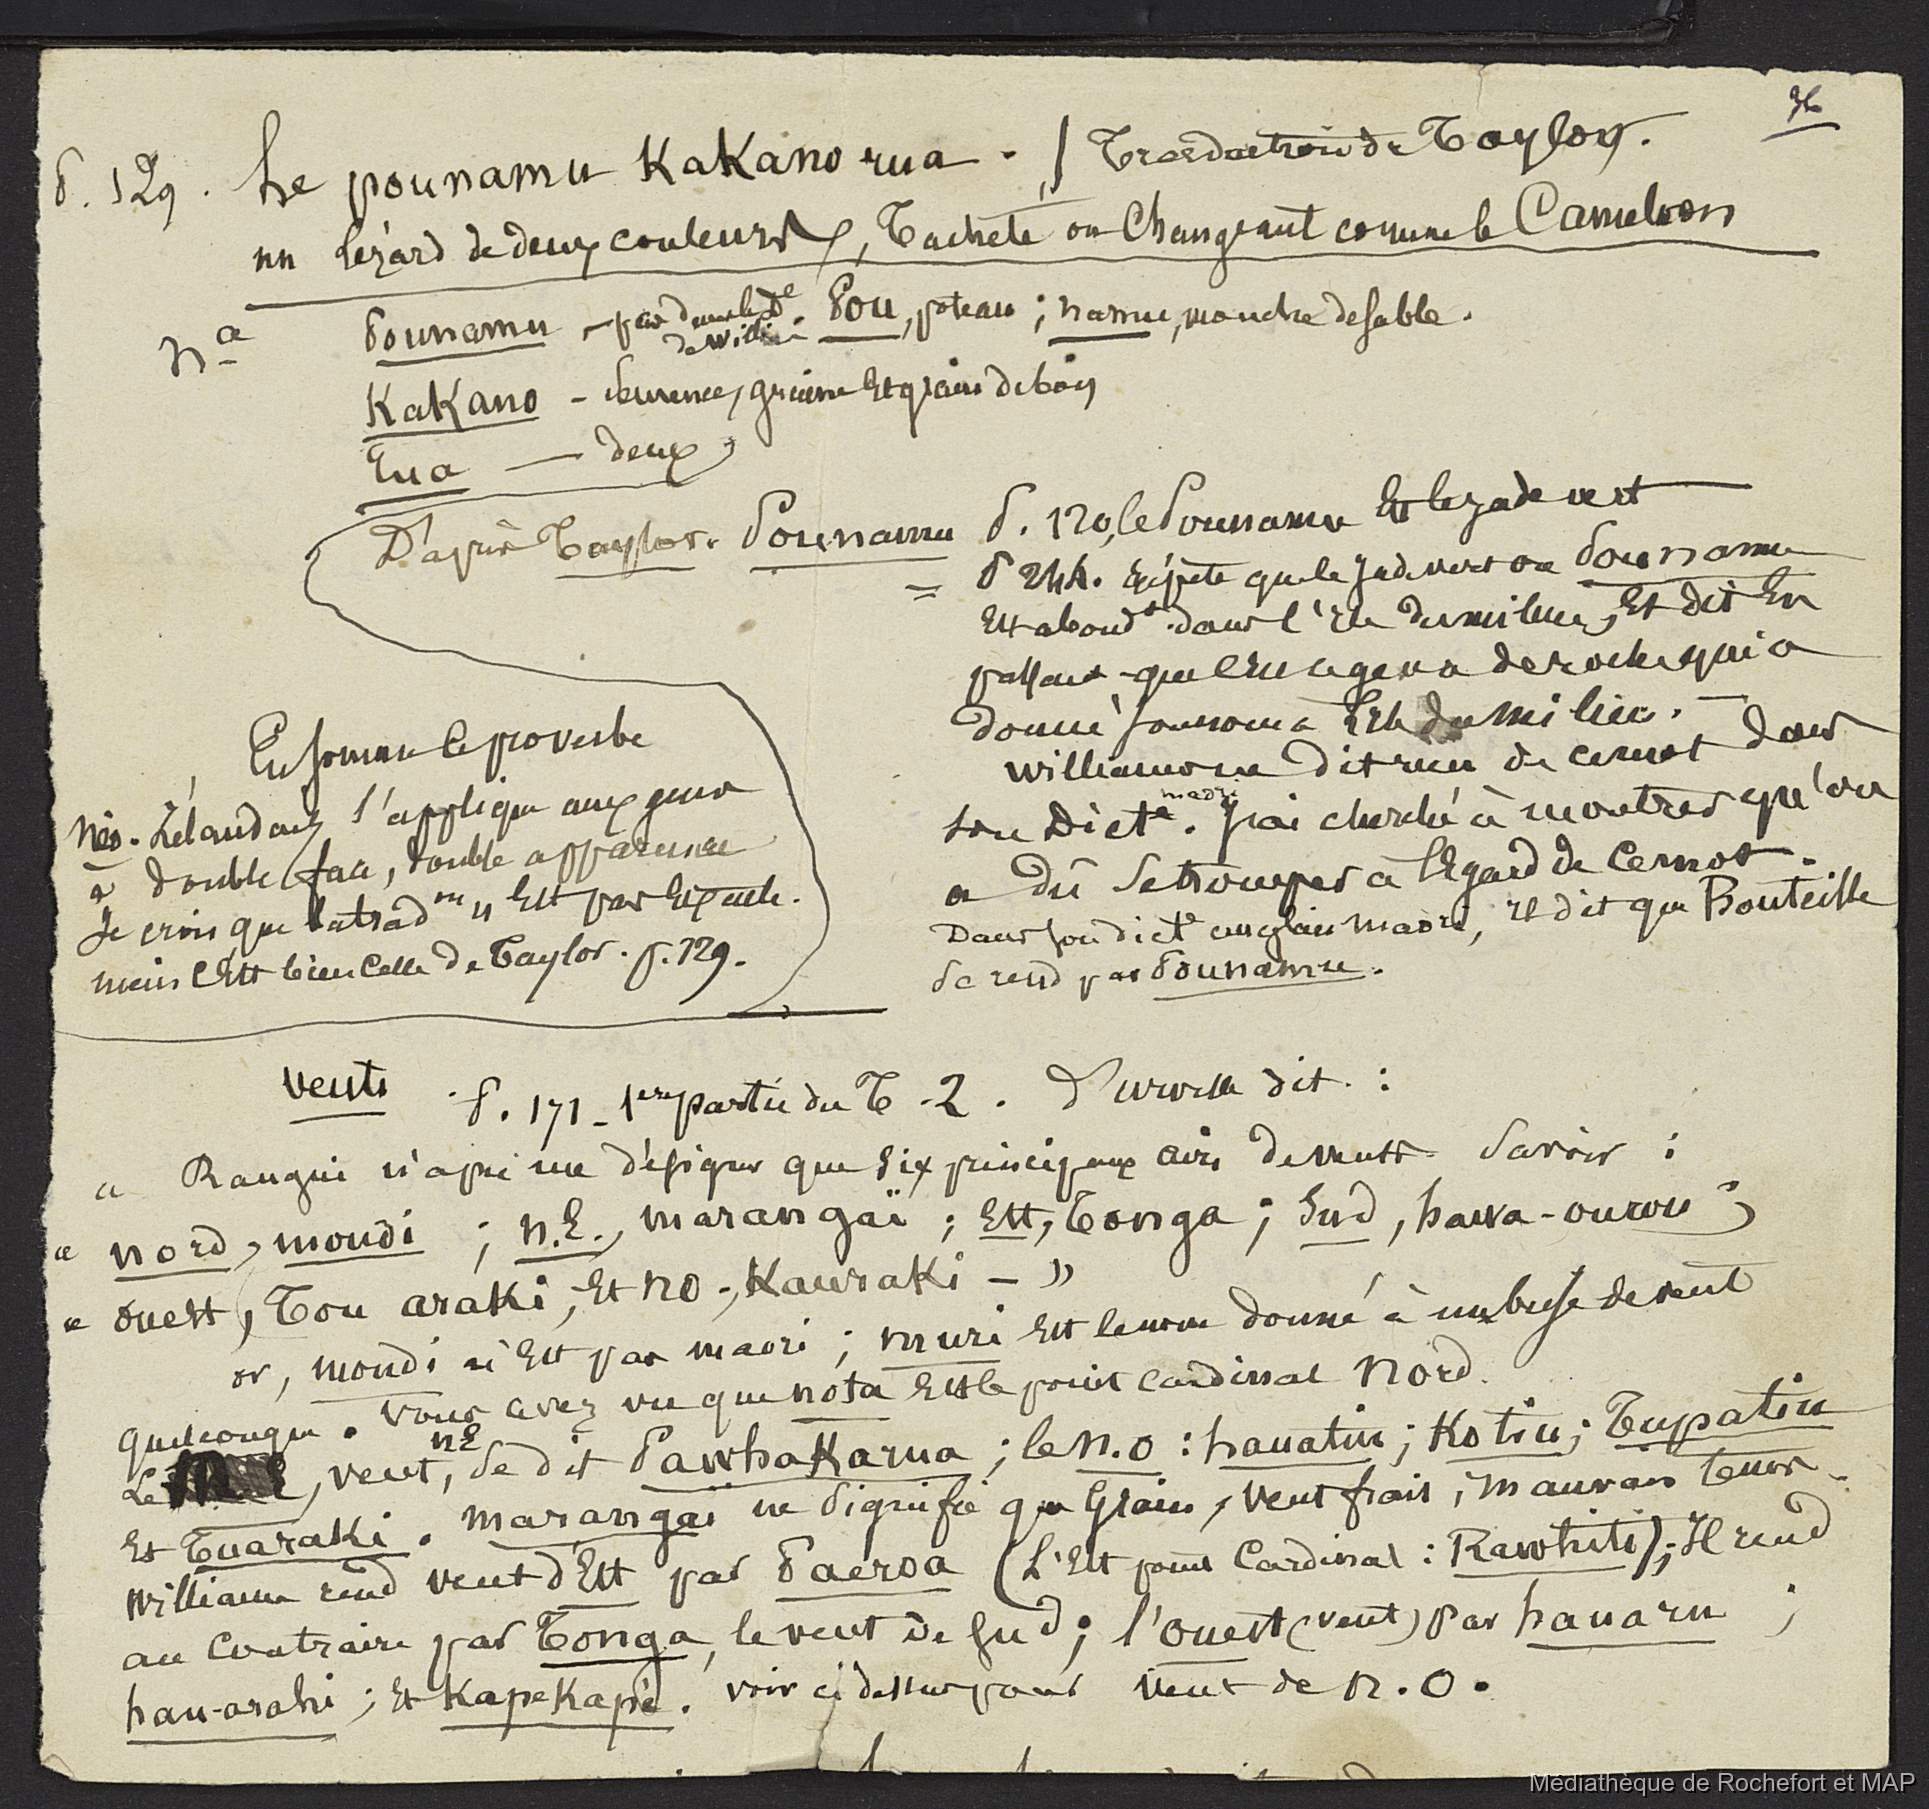 P. 129. he pounamu Kakano rua. Traduction de Taylor.
un lézard de deux couleurs, Tacheté ou Changeant comme le Cameleon
Na Pounamu, pas dans le De de Willi. Pou, poteau; namu, mouche de sable.
KaKano - semence, graine Et grain de bois
Rua — deux
D'après Taylor. Pounamu P. 120, le Pounamu Est le jade vert
= P 244. répète que le jade vert ou Pounamu
Est abondt dans l'île du milieu, Et dit En
passant que c'est ce genre de roche qui a
donné son nom à l'île du milieu.
Williams ne dit rien de ce mot dans
son Dicte maori. J'ai cherché à montrer qu'on
a dû se tromper à l'égard de ce mot.
Dans son dicte anglais maori, il dit que Bouteille
se rend par Pounamu.
En somme le proverbe
néo-Zélandais s'applique aux gens
à double face, double apparence
Je crois que la tradon n'Est pas Exacte.
mais c'Est bien celle de Taylor. p. 129.
Vents. P. 171 - 1ere partie du T. 2. D'urville dit :
" Rangui n'a pu me désigner que six principaux airs de vents Savoir :
" nord, moudi ; n.E., marangaï ; Est, Tonga ; Sud, hawa-ourou ;
" ouest, Tou araki, Et NO-, Kawraki - "
or, moudi n'Est pas maori ; muri Est le nom donné à une brise de vent
quelconque. Vous avez vu que nota Est le point Cardinal Nord.
Le vent, nE se dit PawhaKarua ; le n.o : hauatiu ; Kotiu ; Tupatiu
Et Tuaraki. Marangaï ne signifie que Grain, Vent frais, mauvais temps.
Williams rend vent d'Est par Paeroa (L'Est point Cardinal : Rawhiti) ; Il rend
au Contraire par Tonga, le vent de Sud ; l'ouest (vent) par hauaru ;
hau-arahi ; Et KapeKape. voir ci dessus pour vent de N.O.